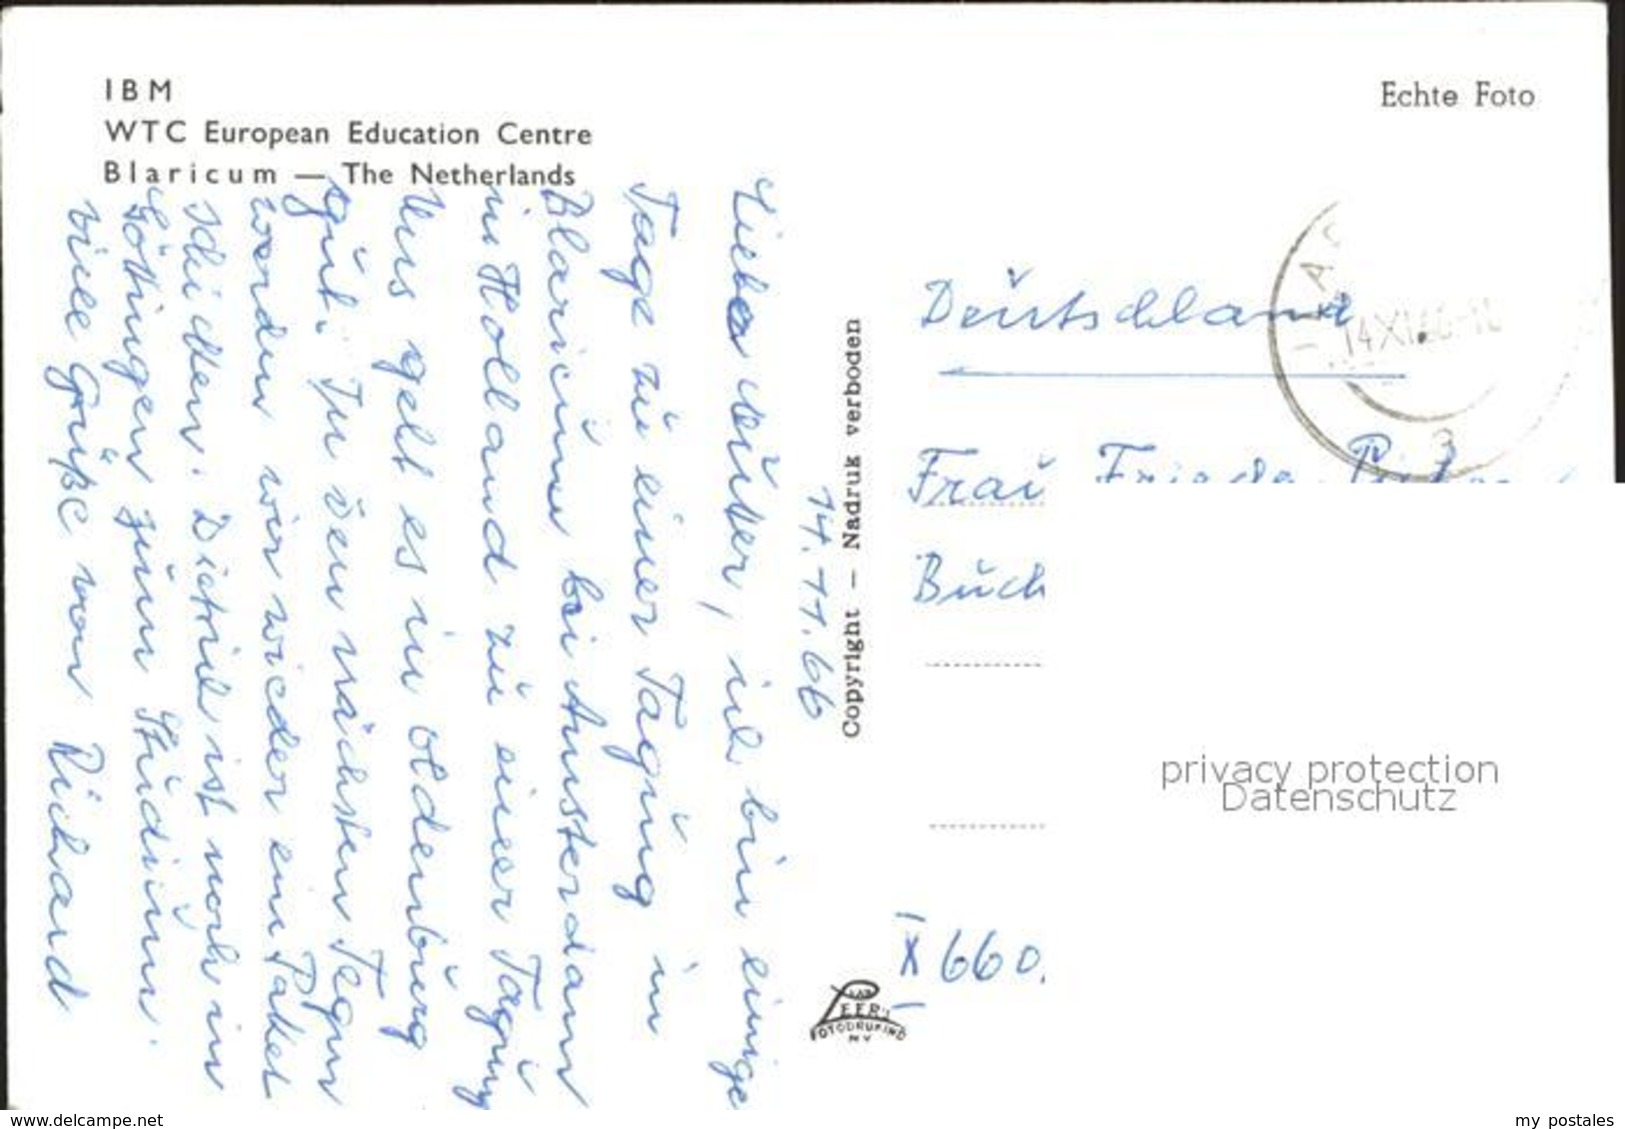 IBM
WTC European Education Centre
Blaricum — The Netherlands
Echte Foto
14.11.66
Liebe Mutter, ich bin einige
Tage zu einer Tagung in
Blaricum bei Amsterdam
in Holland zu einer Tagung
Uns geht es in Oldenburg
gut. In den nächsten Tagen
werden wir wieder ein Paket
schicken. Dietrich ist noch in
Göttingen zum Studium.
Viele Grüße von Richard
Copyright — Nadruk verboden
LEER'S
FOTODRUKIND
NV
Deutschland
14 XI 66
3
Frau Frieda
Buch
X 660.
privacy protection
Datenschutz
www.delcampe.net
my_postales